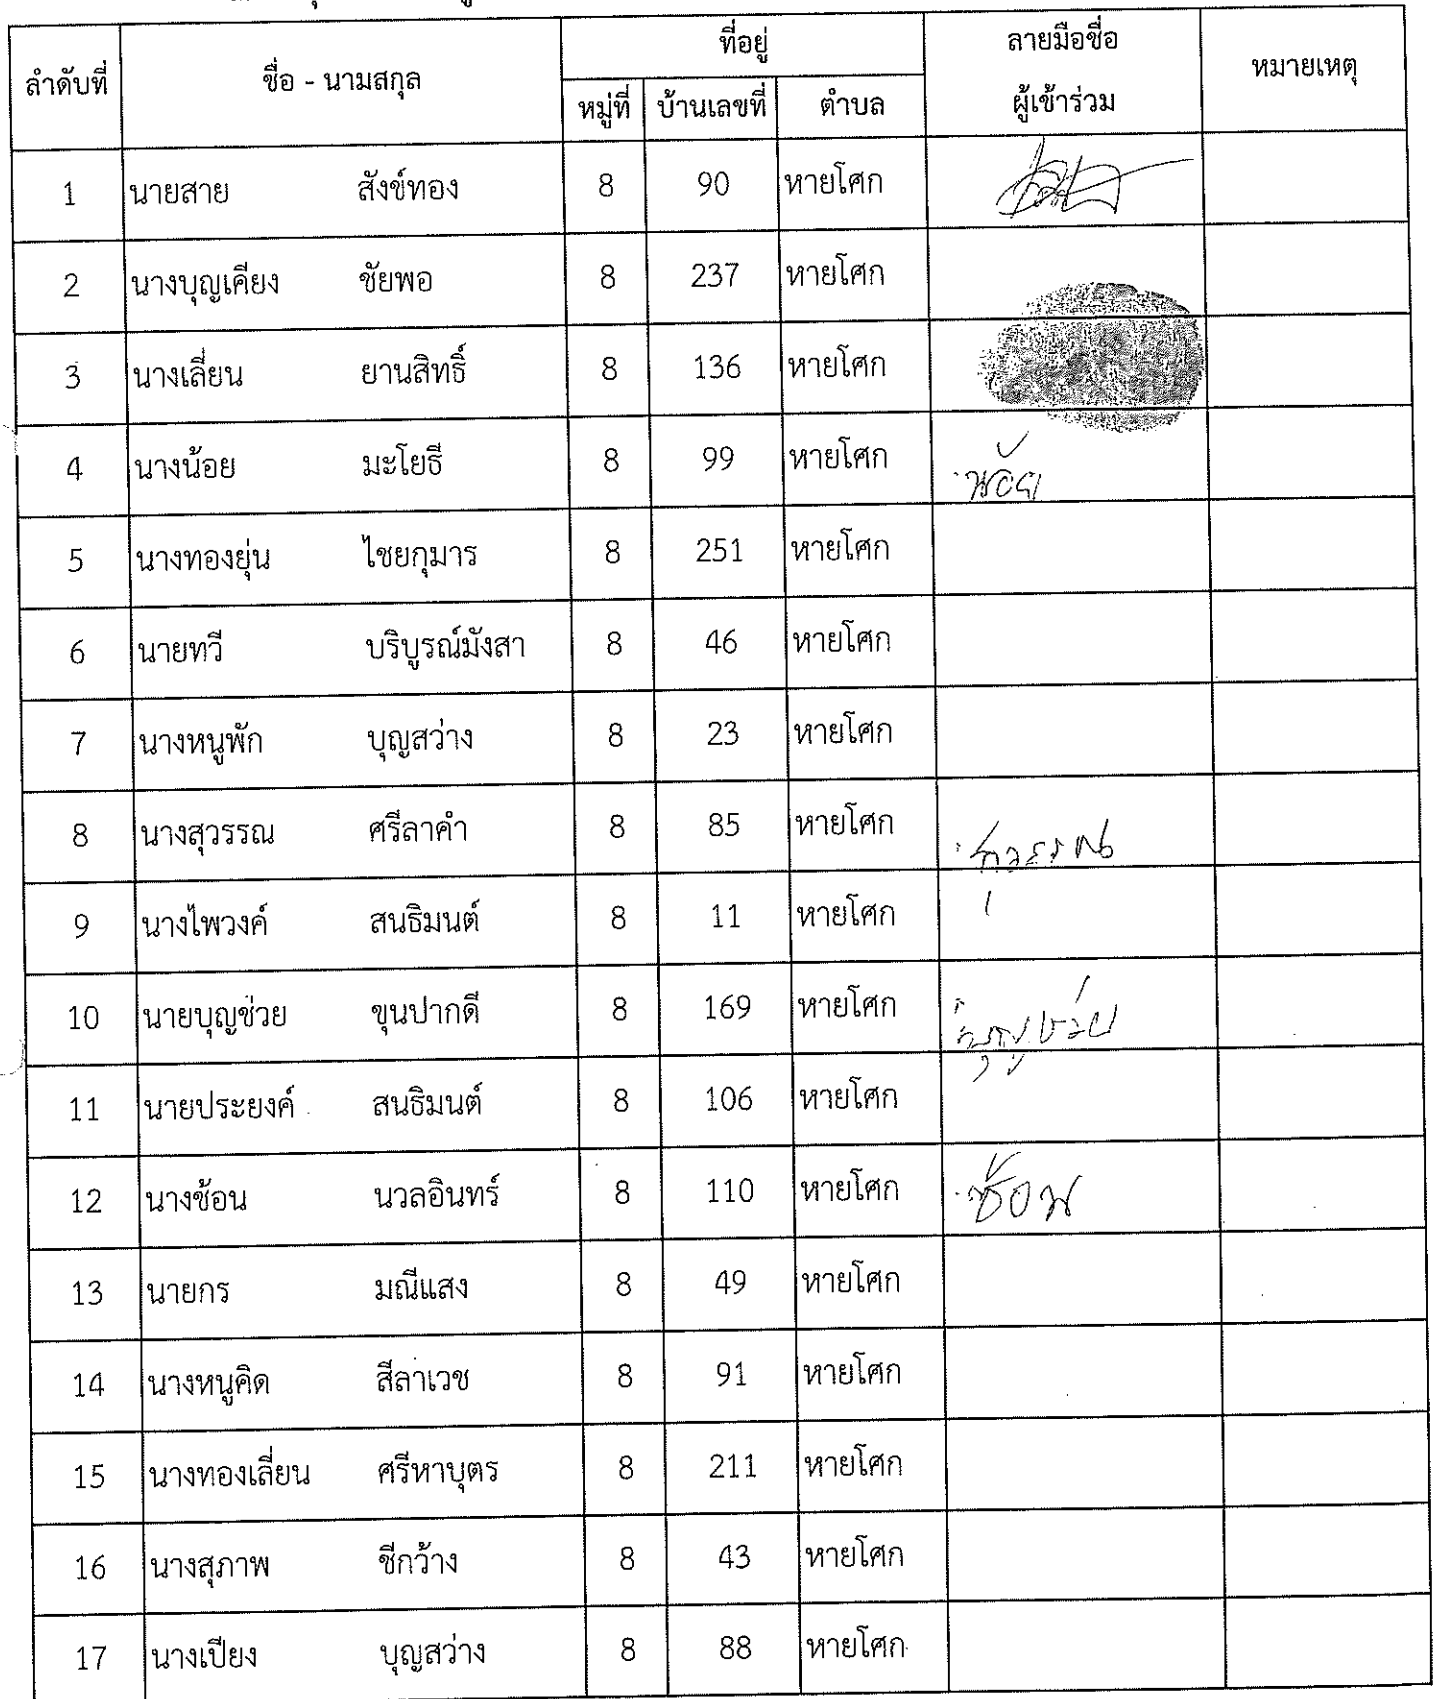 ลำดับที่ ชื่อ - นามสกุล ที่อยู่ ลายมือชื่อ หมายเหตุ
หมู่ที่ บ้านเลขที่ ตำบล ผู้เข้าร่วม
1 นายสาย สังข์ทอง 8 90 หายโศก
2 นางบุญเคียง ชัยพอ 8 237 หายโศก
3 นางเลี่ยน ยานสิทธิ์ 8 136 หายโศก
4 นางน้อย มะโยธี 8 99 หายโศก น้อย
5 นางทองยุ่น ไชยกุมาร 8 251 หายโศก
6 นายทวี บริบูรณ์มังสา 8 46 หายโศก
7 นางหนูพัก บุญสว่าง 8 23 หายโศก
8 นางสุวรรณ ศรีลาคำ 8 85 หายโศก สุวรรณ
9 นางไพวงค์ สนธิมนต์ 8 11 หายโศก
10 นายบุญช่วย ขุนปากดี 8 169 หายโศก บุญช่วย
11 นายประยงค์ สนธิมนต์ 8 106 หายโศก
12 นางซ้อน นวลอินทร์ 8 110 หายโศก ซ้อน
13 นายกร มณีแสง 8 49 หายโศก
14 นางหนูคิด สีลาเวช 8 91 หายโศก
15 นางทองเลี่ยน ศรีหาบุตร 8 211 หายโศก
16 นางสุภาพ ชีกว้าง 8 43 หายโศก
17 นางเปียง บุญสว่าง 8 88 หายโศก